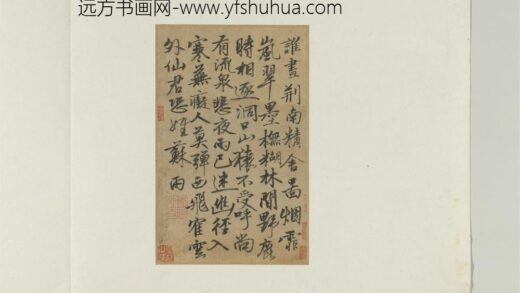 远方书画网-www.yfshuhua.com
誰畫荆南精舍啚烟霏
嵐翠墨模糊林間野鹿
時相逐洞口山猿不受呼尚
有流泉悲夜雨已迷樵徑入
寒蕪癡人莫彈西飛隺雲
外仙君恐姓蘇 雨